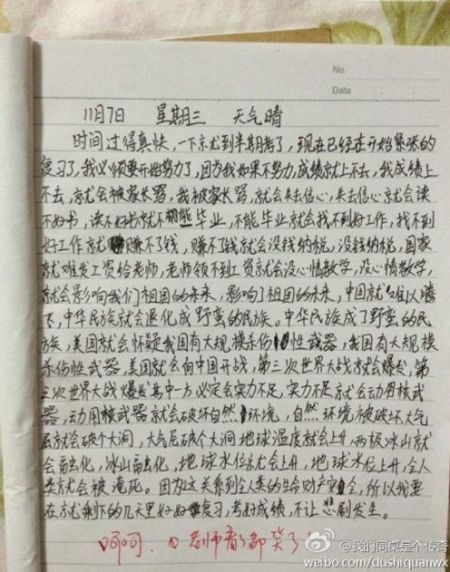 No.
Data
11月7日 星期三 天气晴
时间过得真快，一下就到半期考了，现在已经在开始紧张的
复习了，我必须要开始努力了，因为我如果不努力，成绩就上不去，我成绩上
不去，就会被家长骂，我被家长骂，就会失去信心，失去信心就会读
不好书，读不好书就不能毕业，不能毕业就会找不到好工作，找不到
好工作就赚不了钱，赚不了钱就会没钱纳税，没钱纳税，国家
就难发工资给老师，老师领不到工资就会没心情教学，没心情教学，
就会影响我们祖国的未来，影响了祖国的未来，中国就难以腾
飞，中华民族就会退化成野蛮的民族。中华民族成了野蛮的民
族，美国就会怀疑我国有大规模杀伤性武器，我国有大规模
杀伤性武器，美国就会向中国开战，第三次世界大战就会爆发，第
三次世界大战爆发其中一方必定会实力不足，实力不足就会动用核武
器，动用核武器就会破坏自然环境，自然环境被破坏，大气
层就会破个大洞，大气层破个大洞地球温度就会上升，两极冰山就
会融化，冰山融化，地球水位就会上升，地球水位上升，全人
类就会被淹死。因为这关系到全人类的生命财产安全，所以我要
在就剩下的几天里好好复习，考好成绩，不让悲剧发生。
呵呵，老师看了都笑了
@我的同桌是个传奇
weibo.com/dushiquanwx